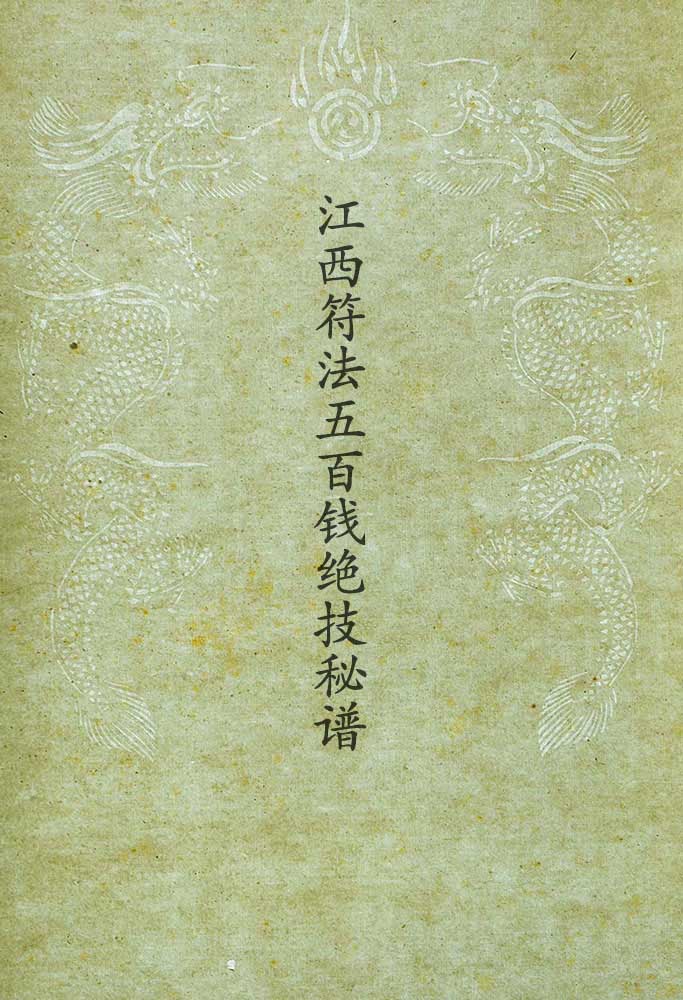 江西符法五百钱绝技秘谱